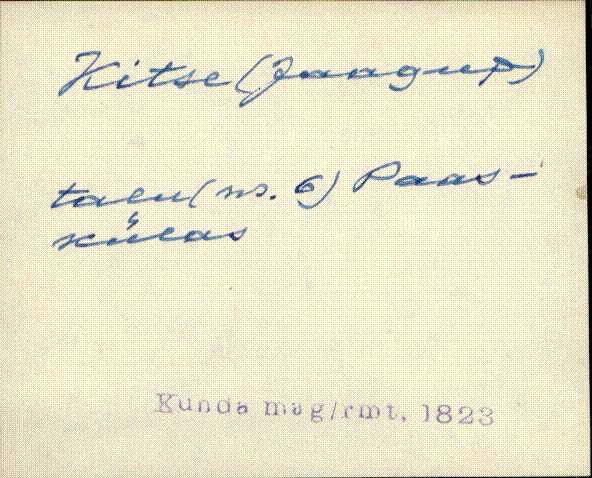 Kitse (Jaagup)
talu (nr. 6) Paas-
külas
Kunda mag/rmt. 1823